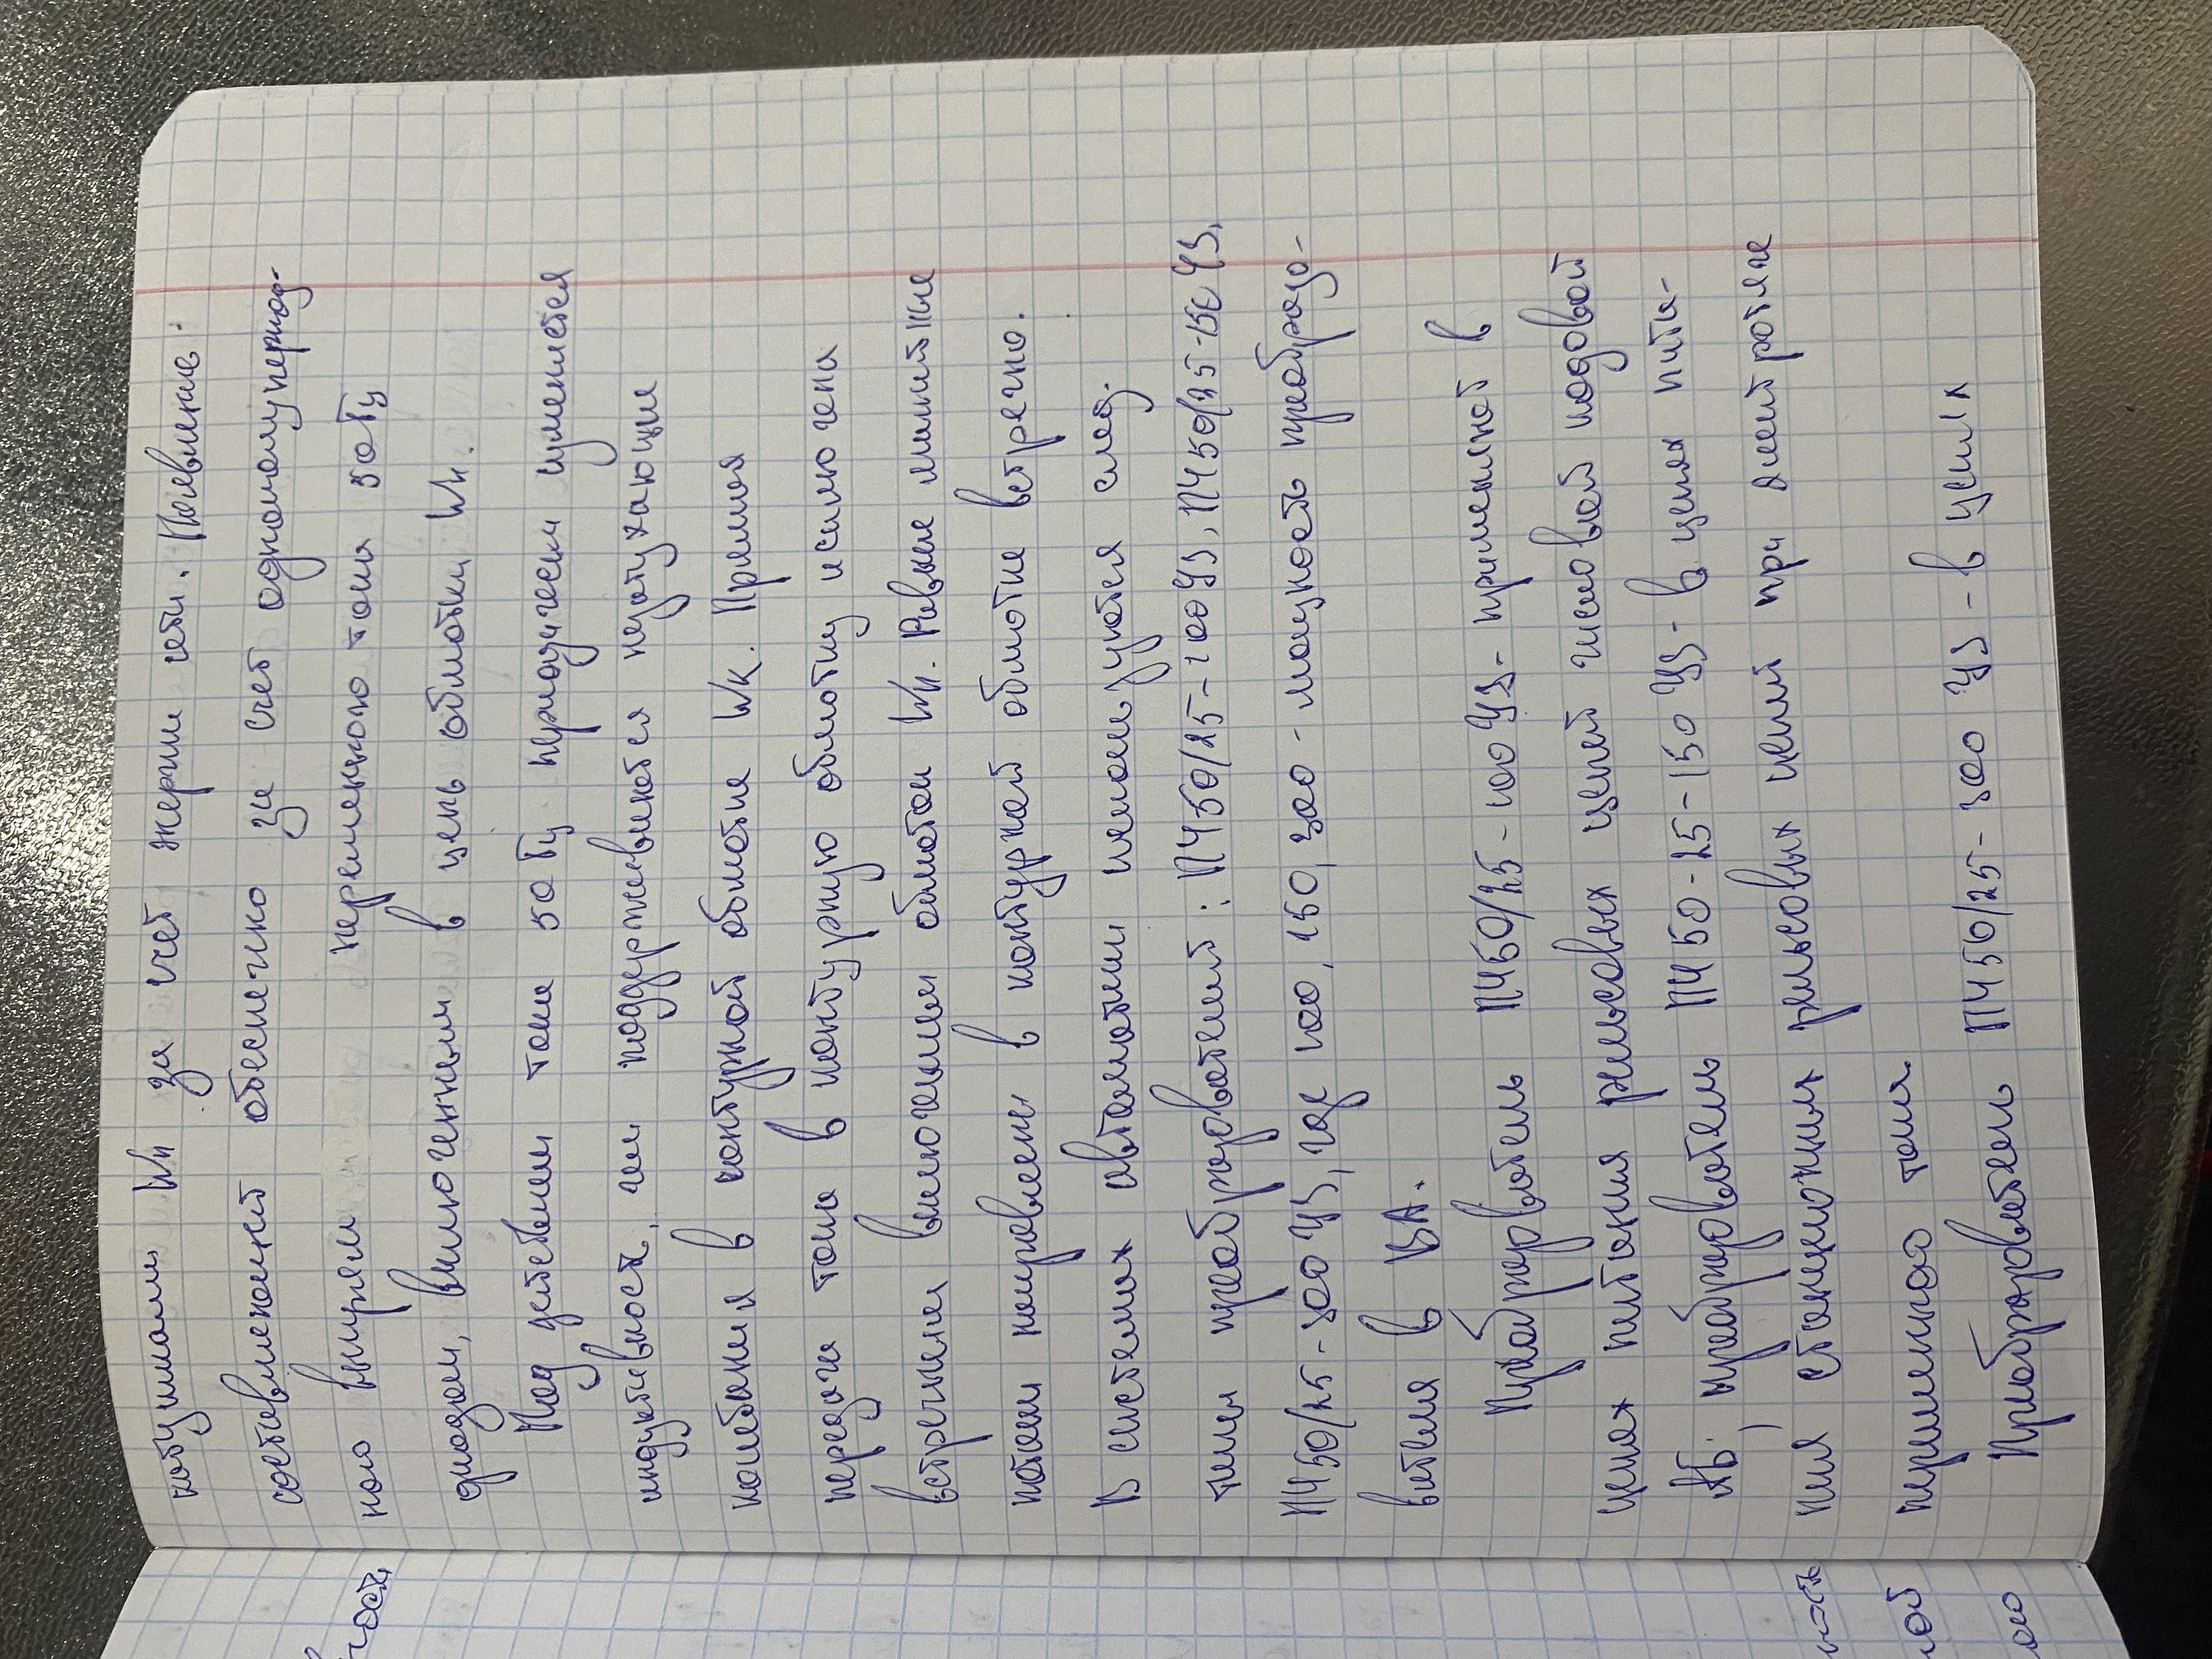 катушками Wн за счет энергии сети. Появление
составляющей обеспечено за счет однополупериод-
ного выпрям переменного тока 50 Гц
диодом, включенным в цепь обмотки Wн.
Под действием тока 50 Гц периодически изменяется
индуктивность, чем поддерживаются незатухающие
колебания в контурной обмотке Wк. Прямая
передача тока в контурную обмотку исключена
встречным включением обмотки Wн. Равные магнитные
потоки направлены в контурной обмотке встречно.
В системах автоматики используются след.
типы преобразователей: ПЧ50/25-100У3, ПЧ50/25-150У3,
ПЧ50/25-300У3, где 100, 150, 300 - мощность преобразо-
вателя в ВА.
Преобразователь ПЧ50/25-100У3- применяют в
цепях питания рельсовых цепей числовой кодовой
АБ; преобразователь ПЧ50-25-150У3- в цепях пита-
ния станционных рельсовых цепей при электротяге
переменного тока.
Преобразователь ПЧ50/25-300 У3 - в цепях
ной
ого